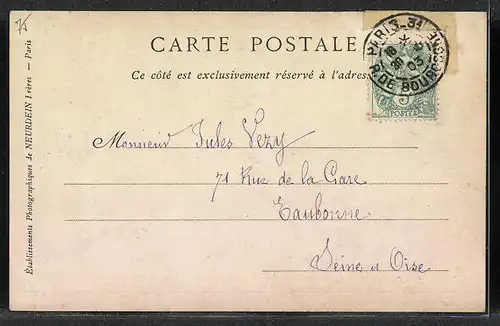 75
CARTE POSTALE
Ce côté est exclusivement réservé à l'adresse
PARIS-31
R. DE BOURGOGNE
18
30
03
5
POSTES
Monsieur Jules Vezy
71 Rue de la Gare
Eaubonne
Seine et Oise
Établissements Photographiques de NEURDEIN Frères – Paris